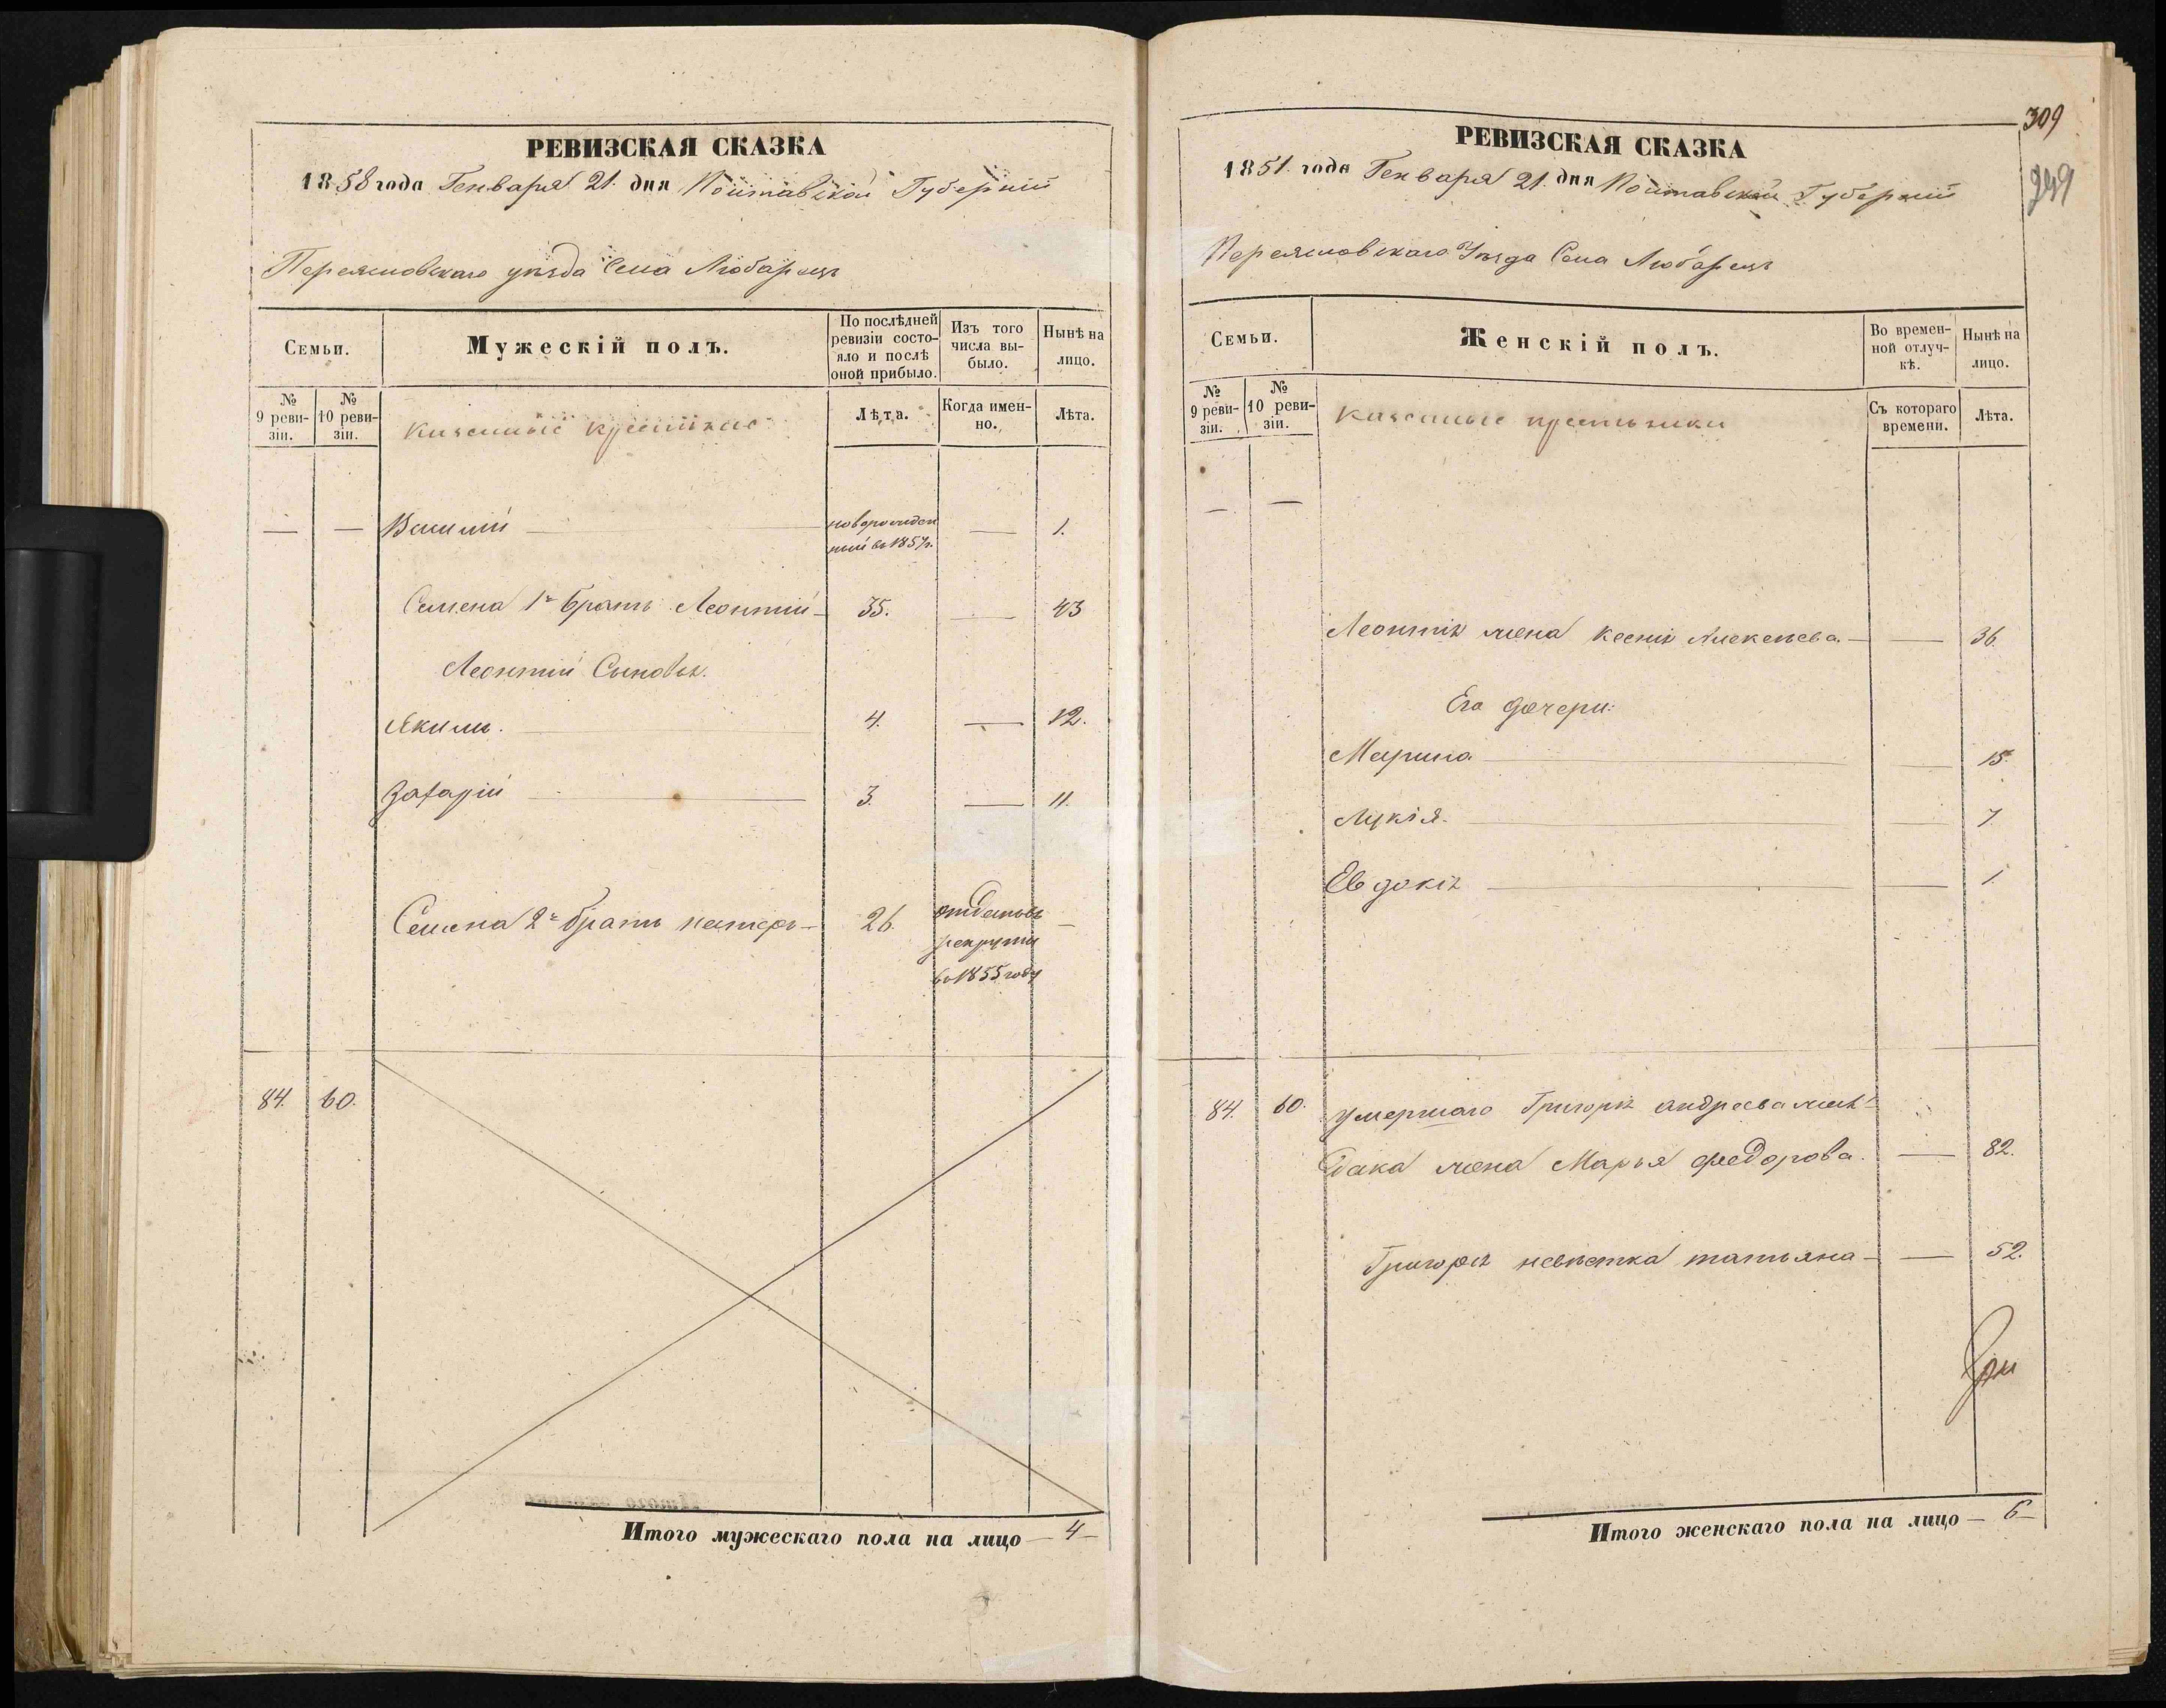 РЕВИЗСКАЯ СКАЗКА
1858 года Генваря 21. дня Полтавской Губернии
Переясловскаго уѣзда Села Любарецъ
Семьи.
Мужескій полъ.
По послѣдней ревизіи состояло и послѣ оной прибыло.
Изъ того числа выбыло.
Нынѣ на лицо.
№ 9 ревизіи.
№ 10 ревизіи.
Казенные
Лѣта.
Когда именно.
Лѣта.
— — Василій — новорожден — 1.
ный въ 1857г.
Семена 1й братъ Леонтій — 35. — 43
Леонтія Сыновья.
Якимъ. — 4. — 12.
Захарій — 3. — 11.
Семена 2й братъ — 26. отданъ въ —
рекруты
въ 1855 году
84. 60.
Итого мужескаго пола на лицо — 4 —
309
РЕВИЗСКАЯ СКАЗКА
1851. года Генваря 21. дня Полтавской Губерніи
Переясловскаго Уѣзда Села Любарецъ
Семьи.
Женскій полъ.
Во временной отлучкѣ.
Нынѣ на лицо.
№ 9 ревизіи.
№ 10 ревизіи.
Казенные крестьянки
Съ котораго времени.
Лѣта.
— —
Леонтія жена Ксенія Алексѣева — — 36.
Его дочери:
Марина — — 15.
Лукія. — — 7
Евдокія — — 1.
84. 60. умершаго Григорія Андреева
жена Марья Федорова. — 82.
Григорія невѣстка татьяна — — 52.
Итого женскаго пола на лицо — 6 —